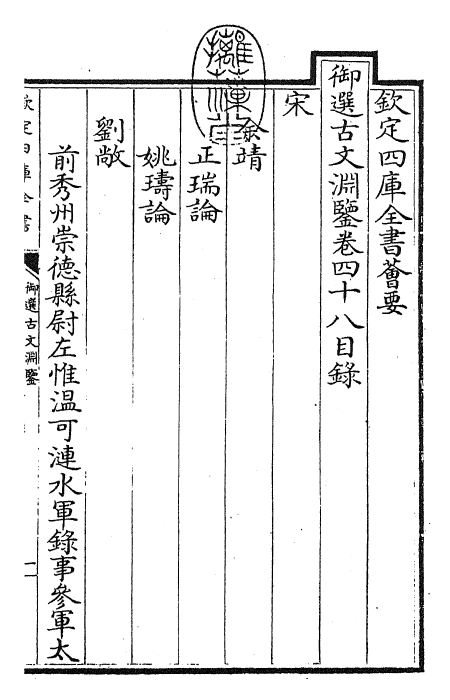 欽定四庫全書薈要
御選古文淵鑒卷四十八目錄
宋
余靖
正瑞論
姚璹論
劉敞
前秀州崇德縣尉左惟溫可漣水軍錄事參軍太
欽定四庫全書
御選古文淵鑒